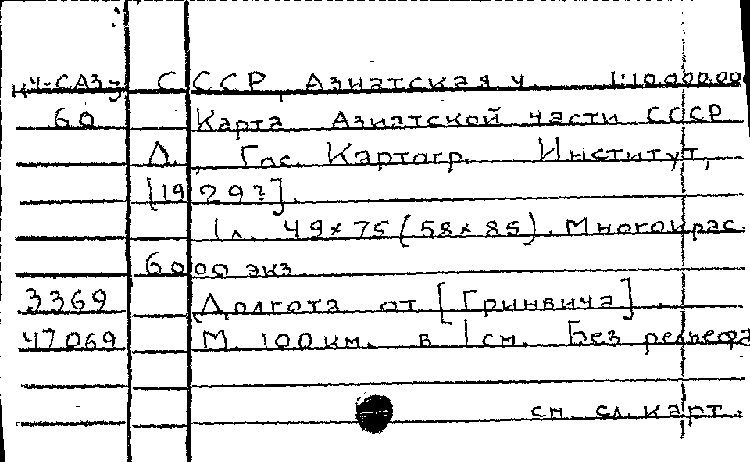 СССР, Азиатская ч. 1:10.000.000
60 Карта Азиатской части СССР
Л., Гос. Картогр. Институт,
[1929?].
1 л. 49×75 (58×85). Многокрас.
6000 экз.
3369 Долгота от [Гринвича].
47069 М. 100 км. в 1 см. Без рельефа
см. сл. карт.